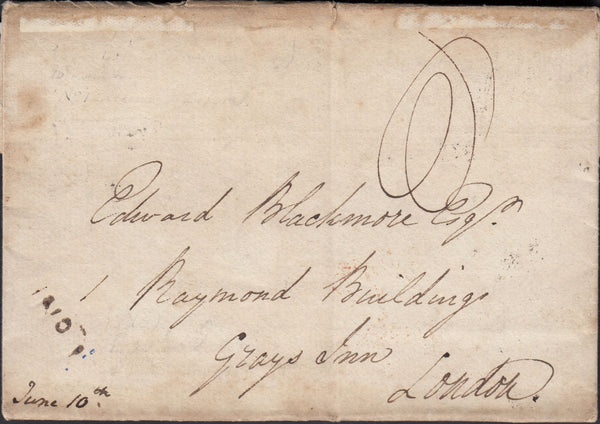 Edward Blackmore Esqr.
1 Raymond Buildings
Grays Inn
London.
June 10th